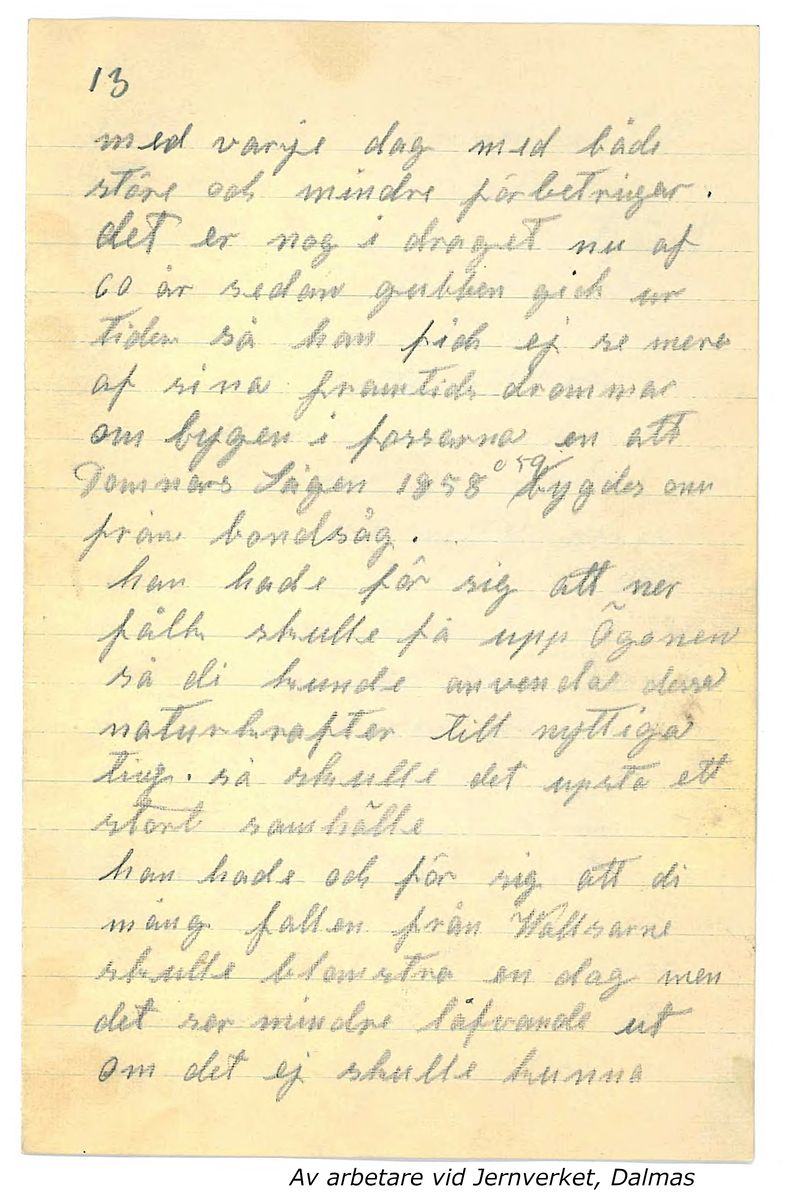 13
med varje dag med både
störe och mindre förbetrigar.
det er nog i draget nu af
60 år sedan gubben gick ur
tiden så han fick ej se mera
af sina framtids drömmar
om bygen i forsarna en att
Domnars Sågen 1858 o 59 bygdes om
från bondsåg.
han hade för sig att ner
fålk skulle få upp Ögonen
så di kunde anvenda dessa
naturkrafter till nyttiga
ting. så skulle det upstå ett
stort samhälle
han hade och för sig att di
mång fallen från Wallsarne
skulle blomstra en dag men
det ser mindre låfvande ut
om det ej skulle kunna
Av arbetare vid Jernverket, Dalmas